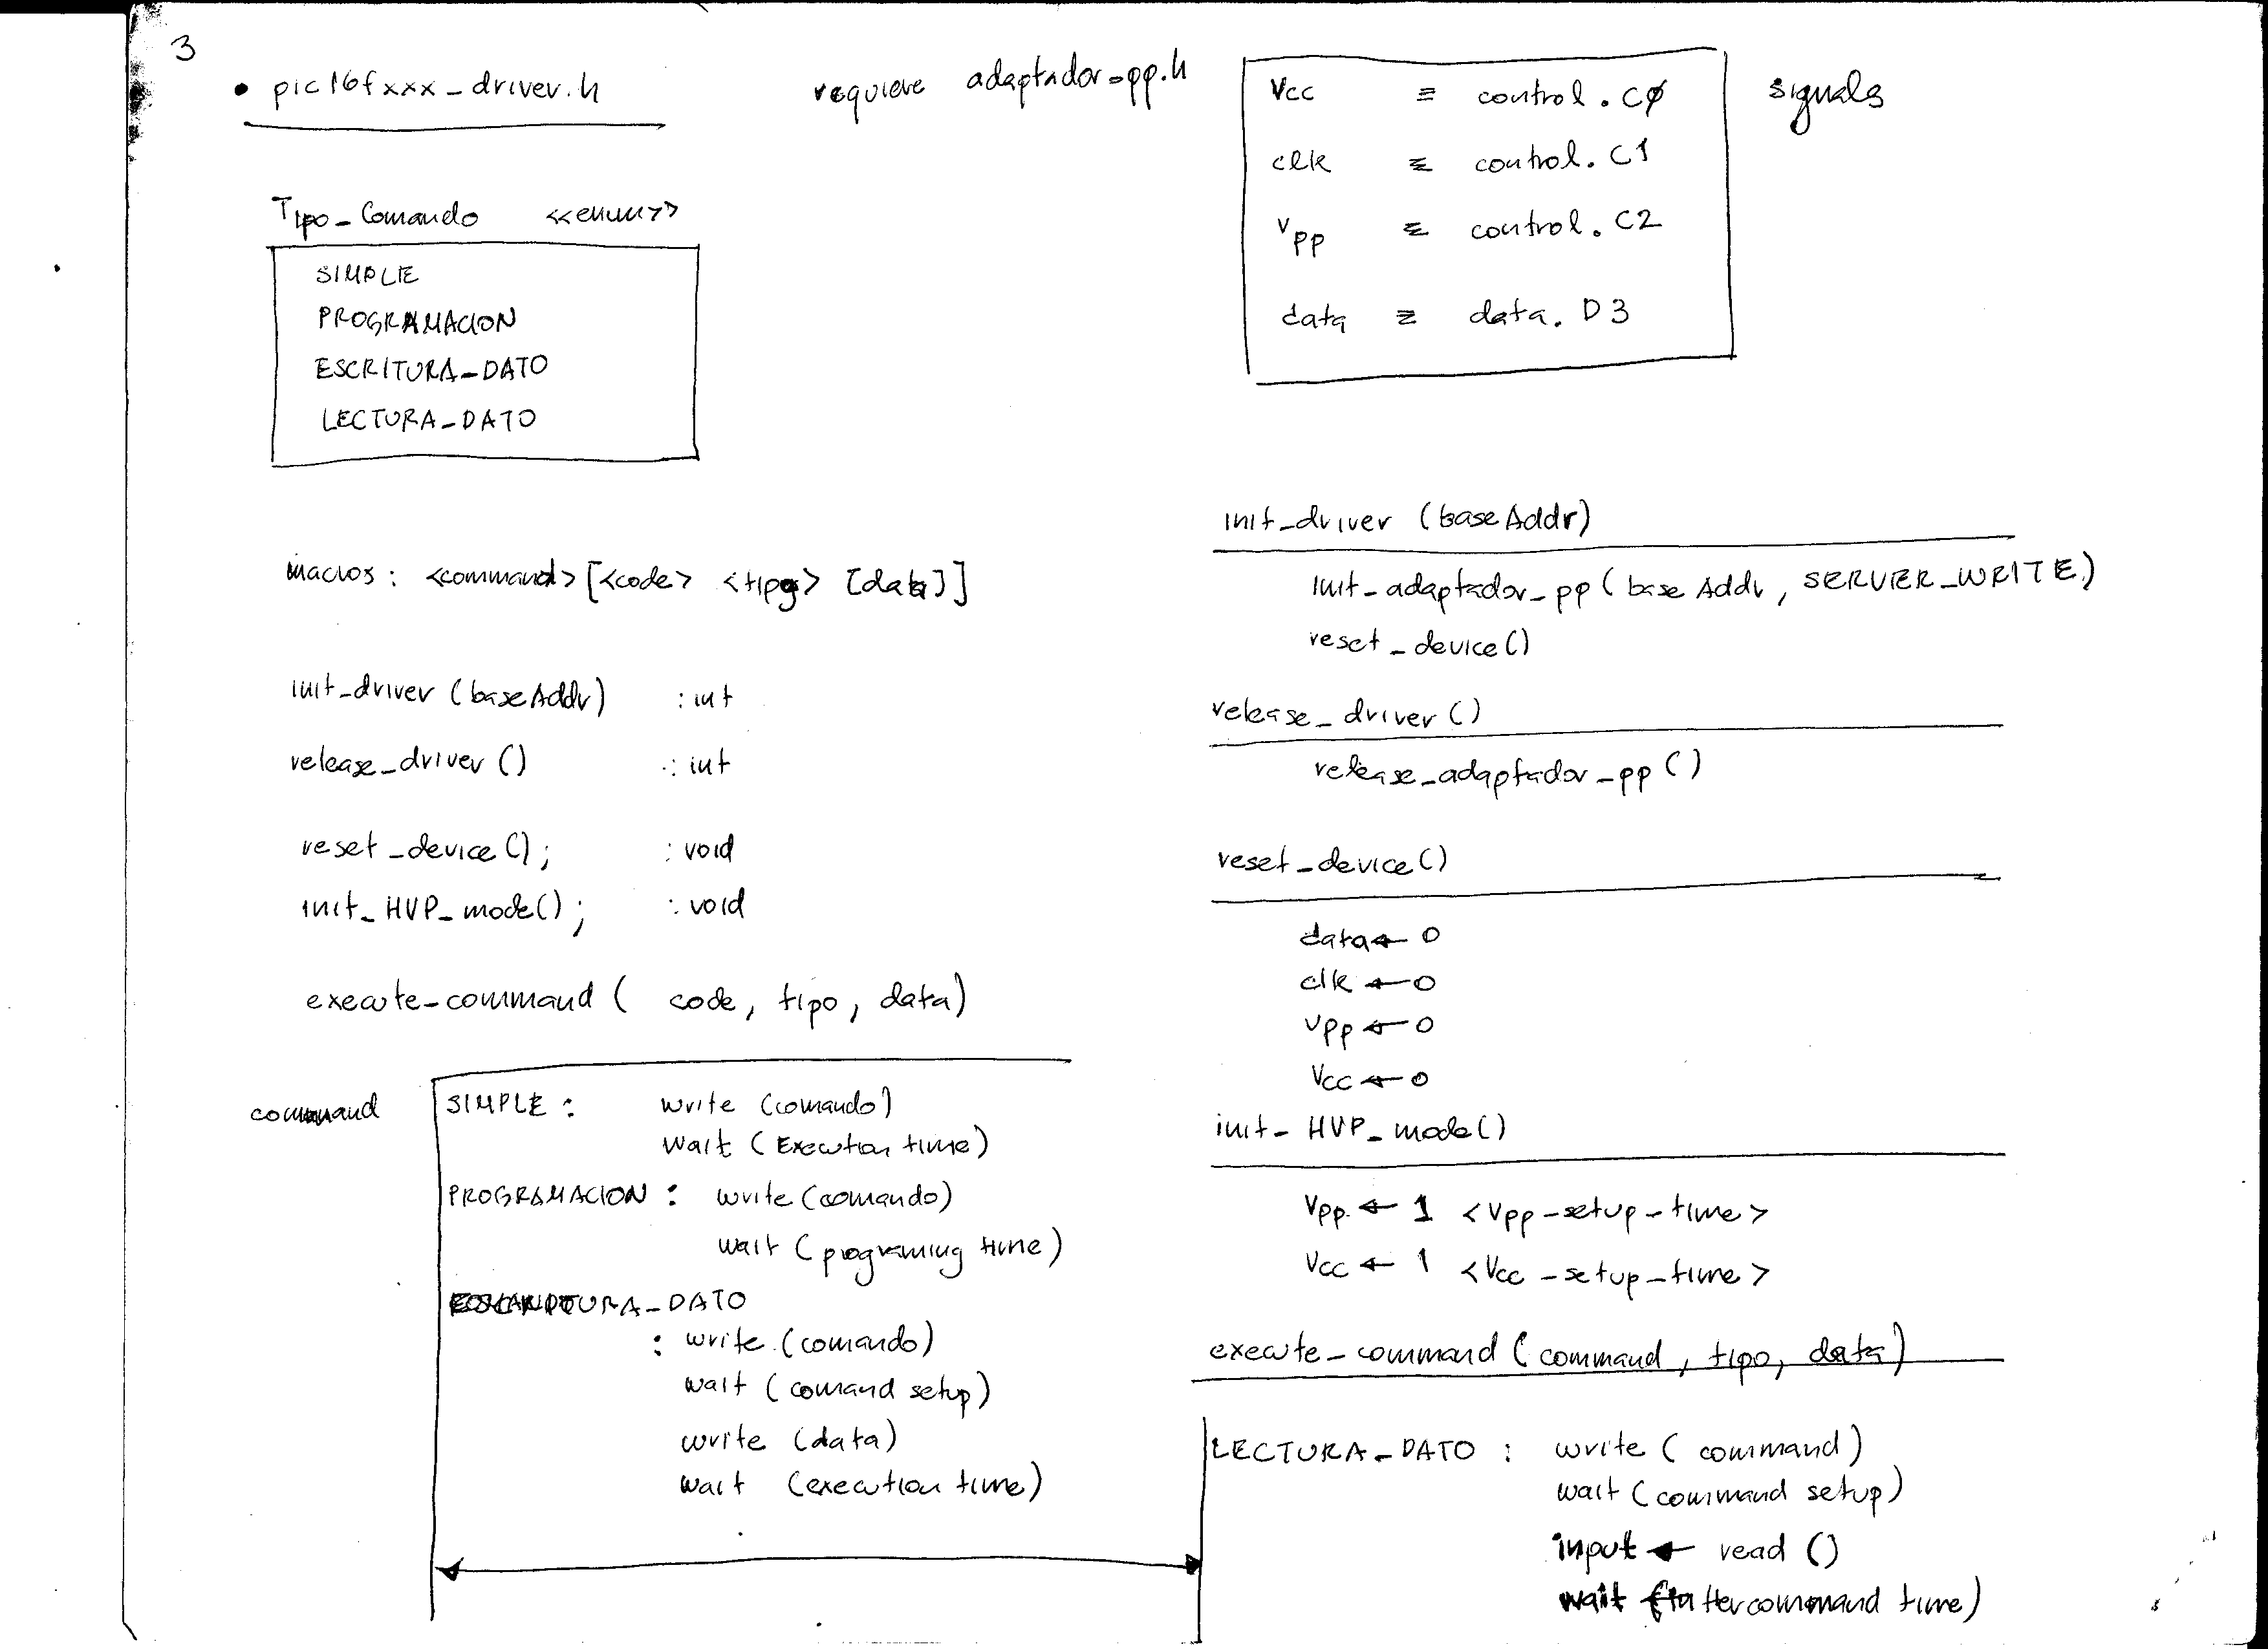 3
• pic16fxxx_driver.h
requiere adaptador_pp.h
Tipo_Comando <<enum>>
SIMPLE
PROGRAMACION
ESCRITURA_DATO
LECTURA_DATO
macros : <command> [<code> <tipo> [data]]
init_driver (baseAddr) : int
release_driver () : int
reset_device (); : void
init_HVP_mode(); : void
execute_command ( code, tipo, data)
command
SIMPLE : write (comando)
wait (Execution time)
PROGRAMACION : write (comando)
wait (programing time)
ESCRITURA_DATO
: write (comando)
wait (comand setup)
write (data)
wait (execution time)
Vcc ≡ control.C0
clk ≡ control.C1
Vpp ≡ control.C2
data ≡ data.D3
signals
init_driver (baseAddr)
init_adaptador_pp (baseAddr, SERVER_WRITE)
reset_device ()
release_driver ()
release_adaptador_pp ()
reset_device ()
data ← 0
clk ← 0
Vpp ← 0
Vcc ← 0
init_HVP_mode()
Vpp ← 1 <Vpp_setup_time>
Vcc ← 1 <Vcc_setup_time>
execute_command (command, tipo, data)
LECTURA_DATO : write (command)
wait (command setup)
input ← read ()
wait (intercommand time)